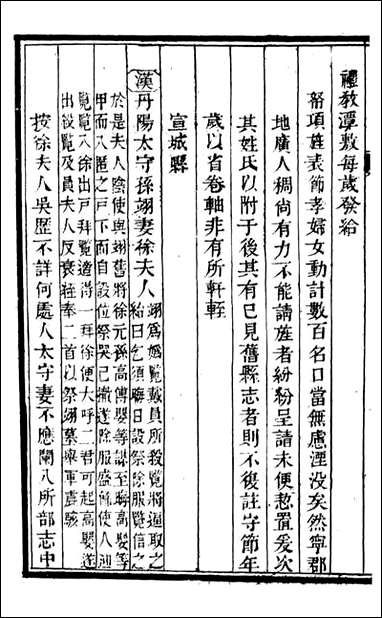 禮教潭敷每歲發給
帑項旌表節孝婦女動計數百名口當無慮湮沒矣然寧郡
地廣人稠尚有力不能請旌者紛紛呈請未便恝置爰次
其姓氏以附于後其有已見舊縣志者則不復註守節年
歲以省卷軸非有所軒輊
宣城縣
漢丹陽太守孫翊妻徐夫人
翊為媯覽戴員所殺覽將逼取之
紿曰乞須晦日設祭除服覽信之
於是夫人陰使與翊舊將徐元孫高傅嬰等謀至晦高嬰等
甲而入匿之戶下而自設位祭哭已撤遂除服盛飾使人迎
覽覽入徐出戶拜覽適得一拜徐便大呼二君可起高嬰遂
出殺覽及員夫人反衰絰奉二首以祭翊墓舉軍震駭
按徐夫人吳歷不詳何處人太守妻不應闌入所部志中